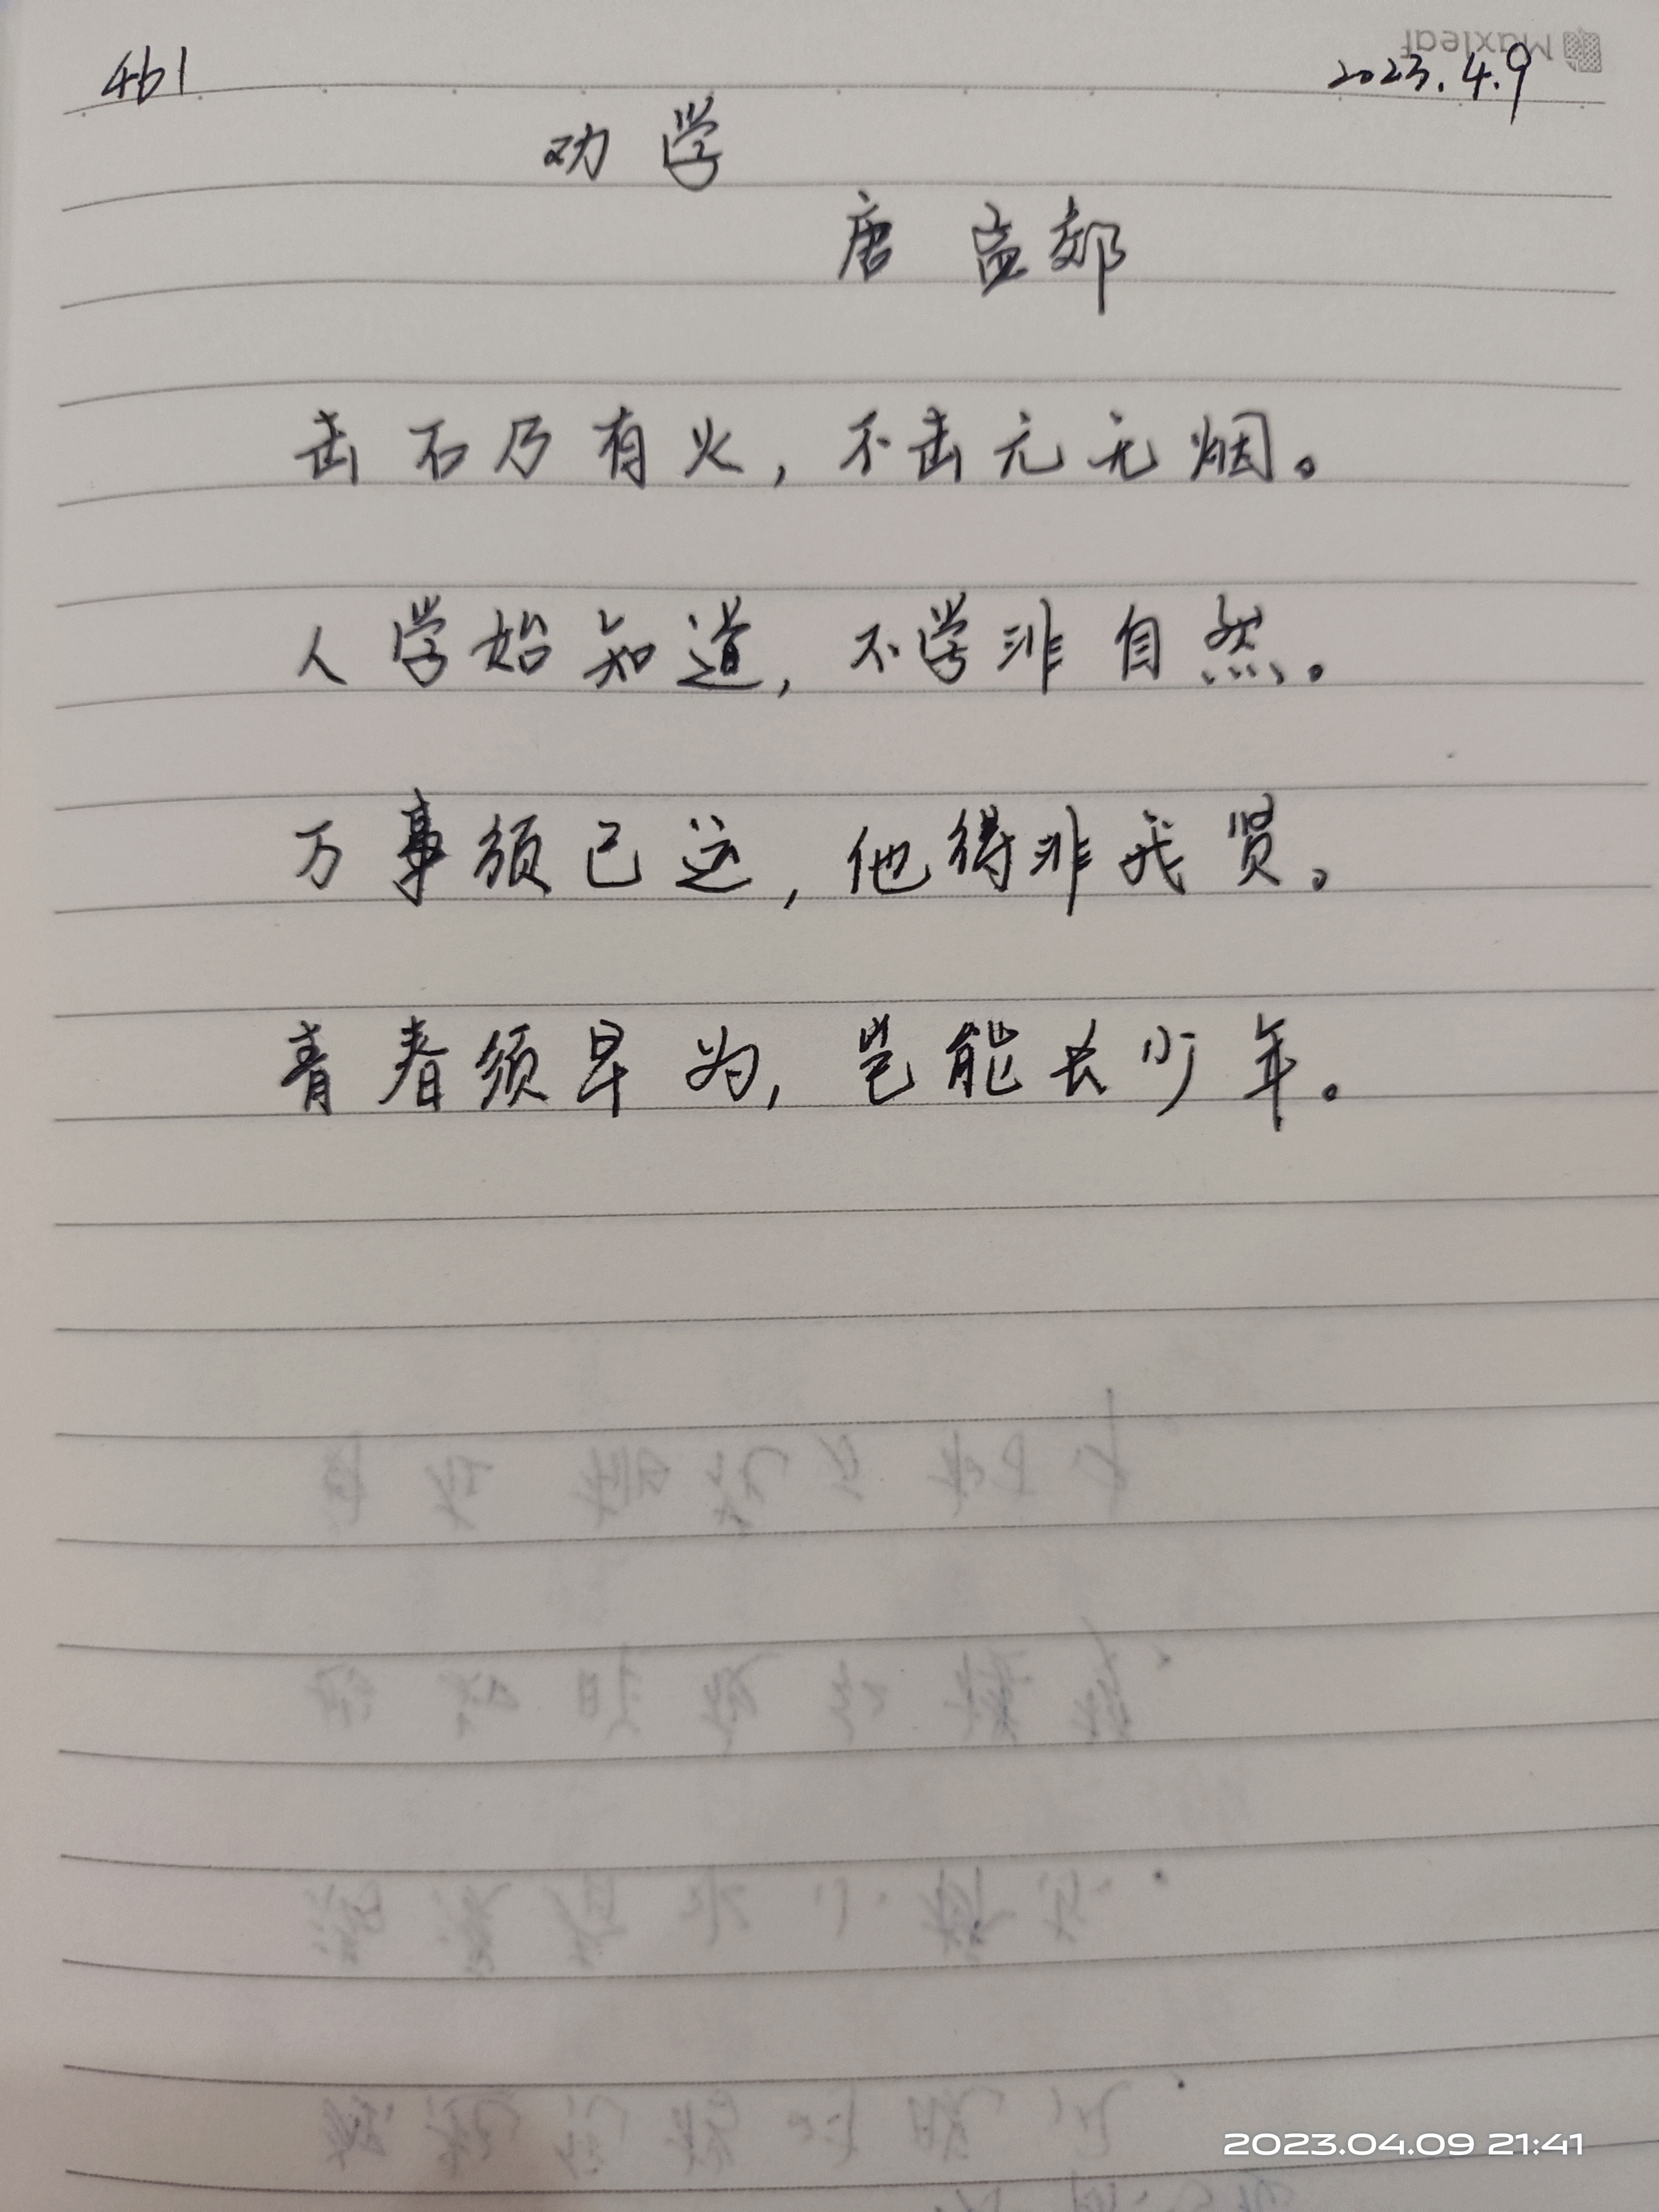 461 2023.4.9
Maxleaf
劝学
唐 孟郊
击石乃有火，不击元无烟。
人学始知道，不学非自然。
万事须己运，他得非我贤。
青春须早为，岂能长少年。
2023.04.09 21:41